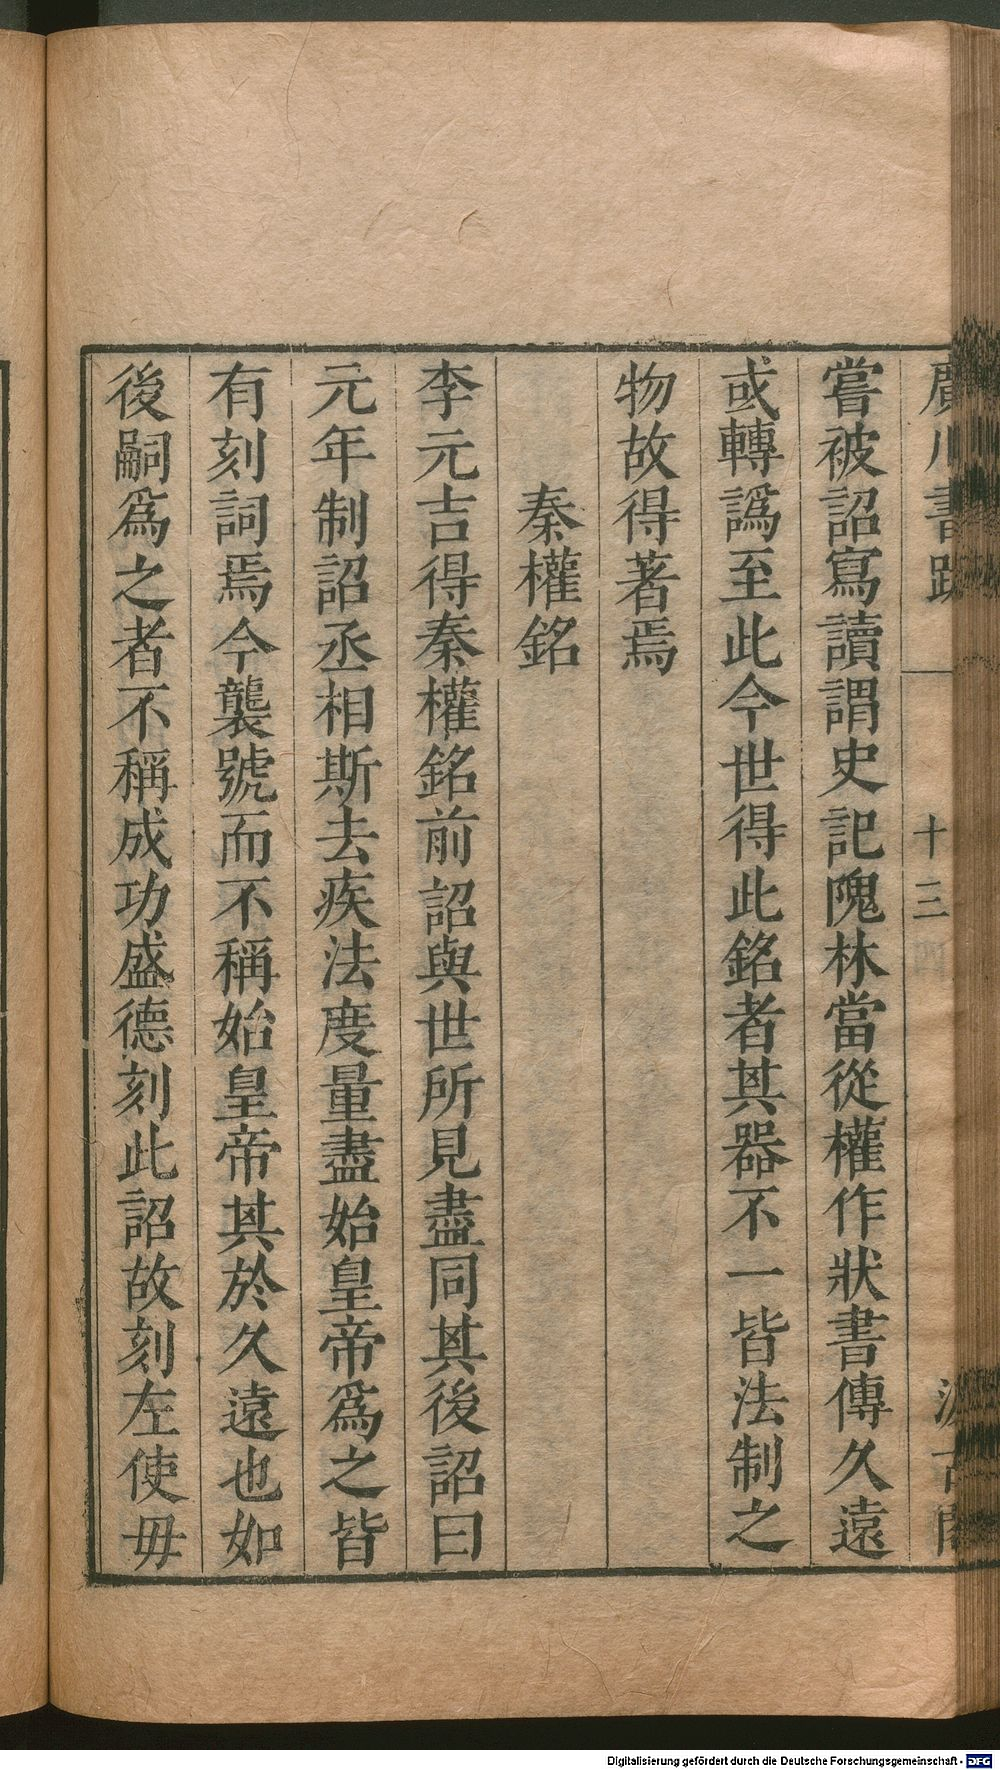 廣川書跋 十三 汲古閣
嘗被詔寫讀謂史記隗林當從權作狀書傳久遠
或轉譌至此今世得此銘者其器不一皆法制之
物故得著焉
秦權銘
李元吉得秦權銘前詔與世所見盡同其後詔曰
元年制詔丞相斯去疾法度量盡始皇帝爲之皆
有刻詞焉今襲號而不稱始皇帝其於久遠也如
後嗣爲之者不稱成功盛德刻此詔故刻左使毋
Digitalisierung gefördert durch die Deutsche Forschungsgemeinschaft - DFG